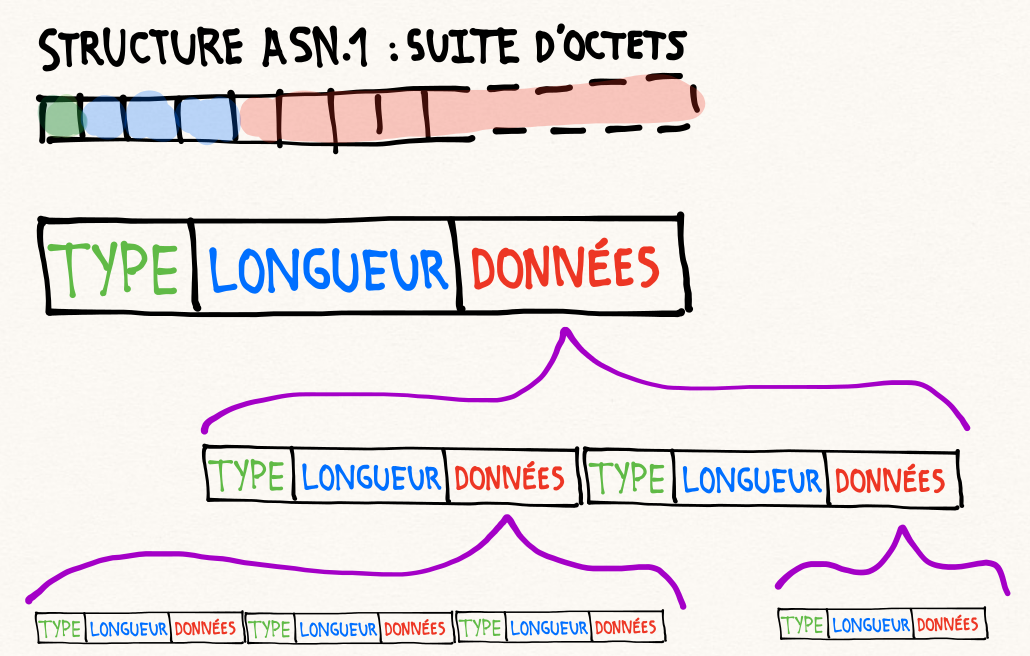 STRUCTURE ASN.1 : SUITE D'OCTETS
TYPE LONGUEUR DONNÉES
TYPE LONGUEUR DONNÉES TYPE LONGUEUR DONNÉES
TYPE LONGUEUR DONNÉES TYPE LONGUEUR DONNÉES TYPE LONGUEUR DONNÉES TYPE LONGUEUR DONNÉES